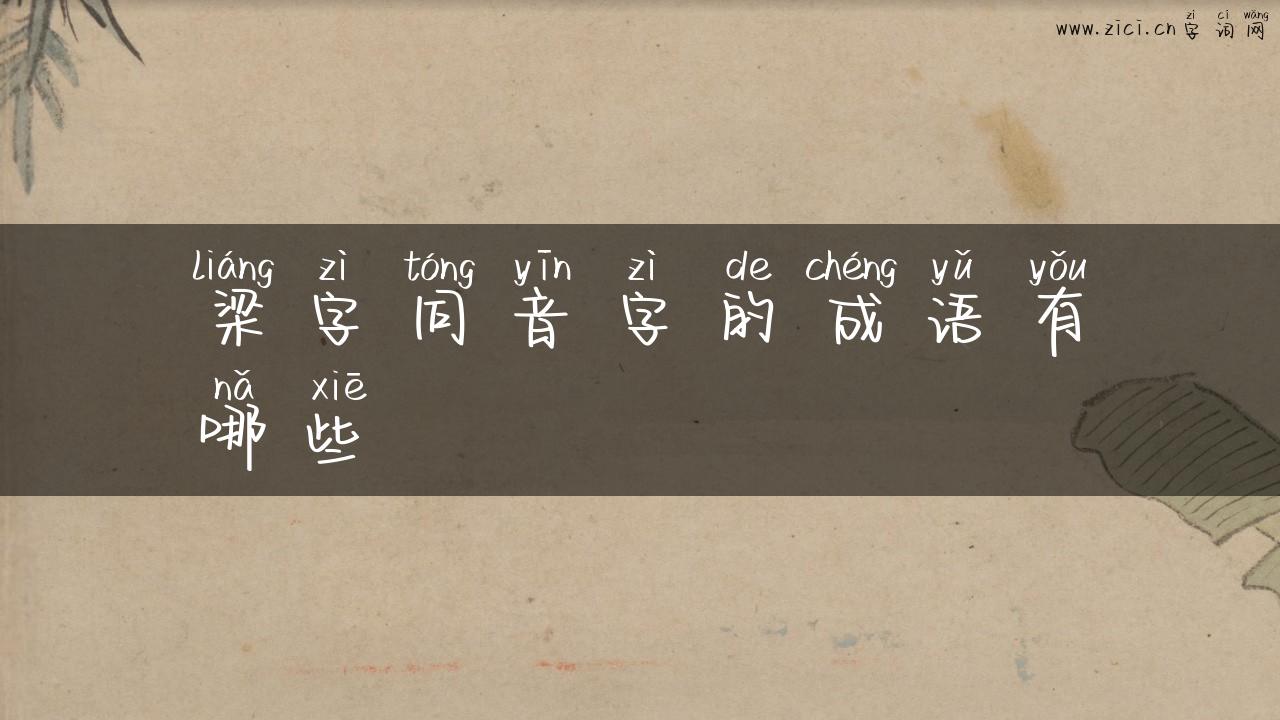 zì cí wǎng
www.zici.cn 字 词 网
liáng zì tóng yīn zì de chéng yǔ yǒu
梁 字 同 音 字 的 成 语 有
nǎ xiē
哪 些